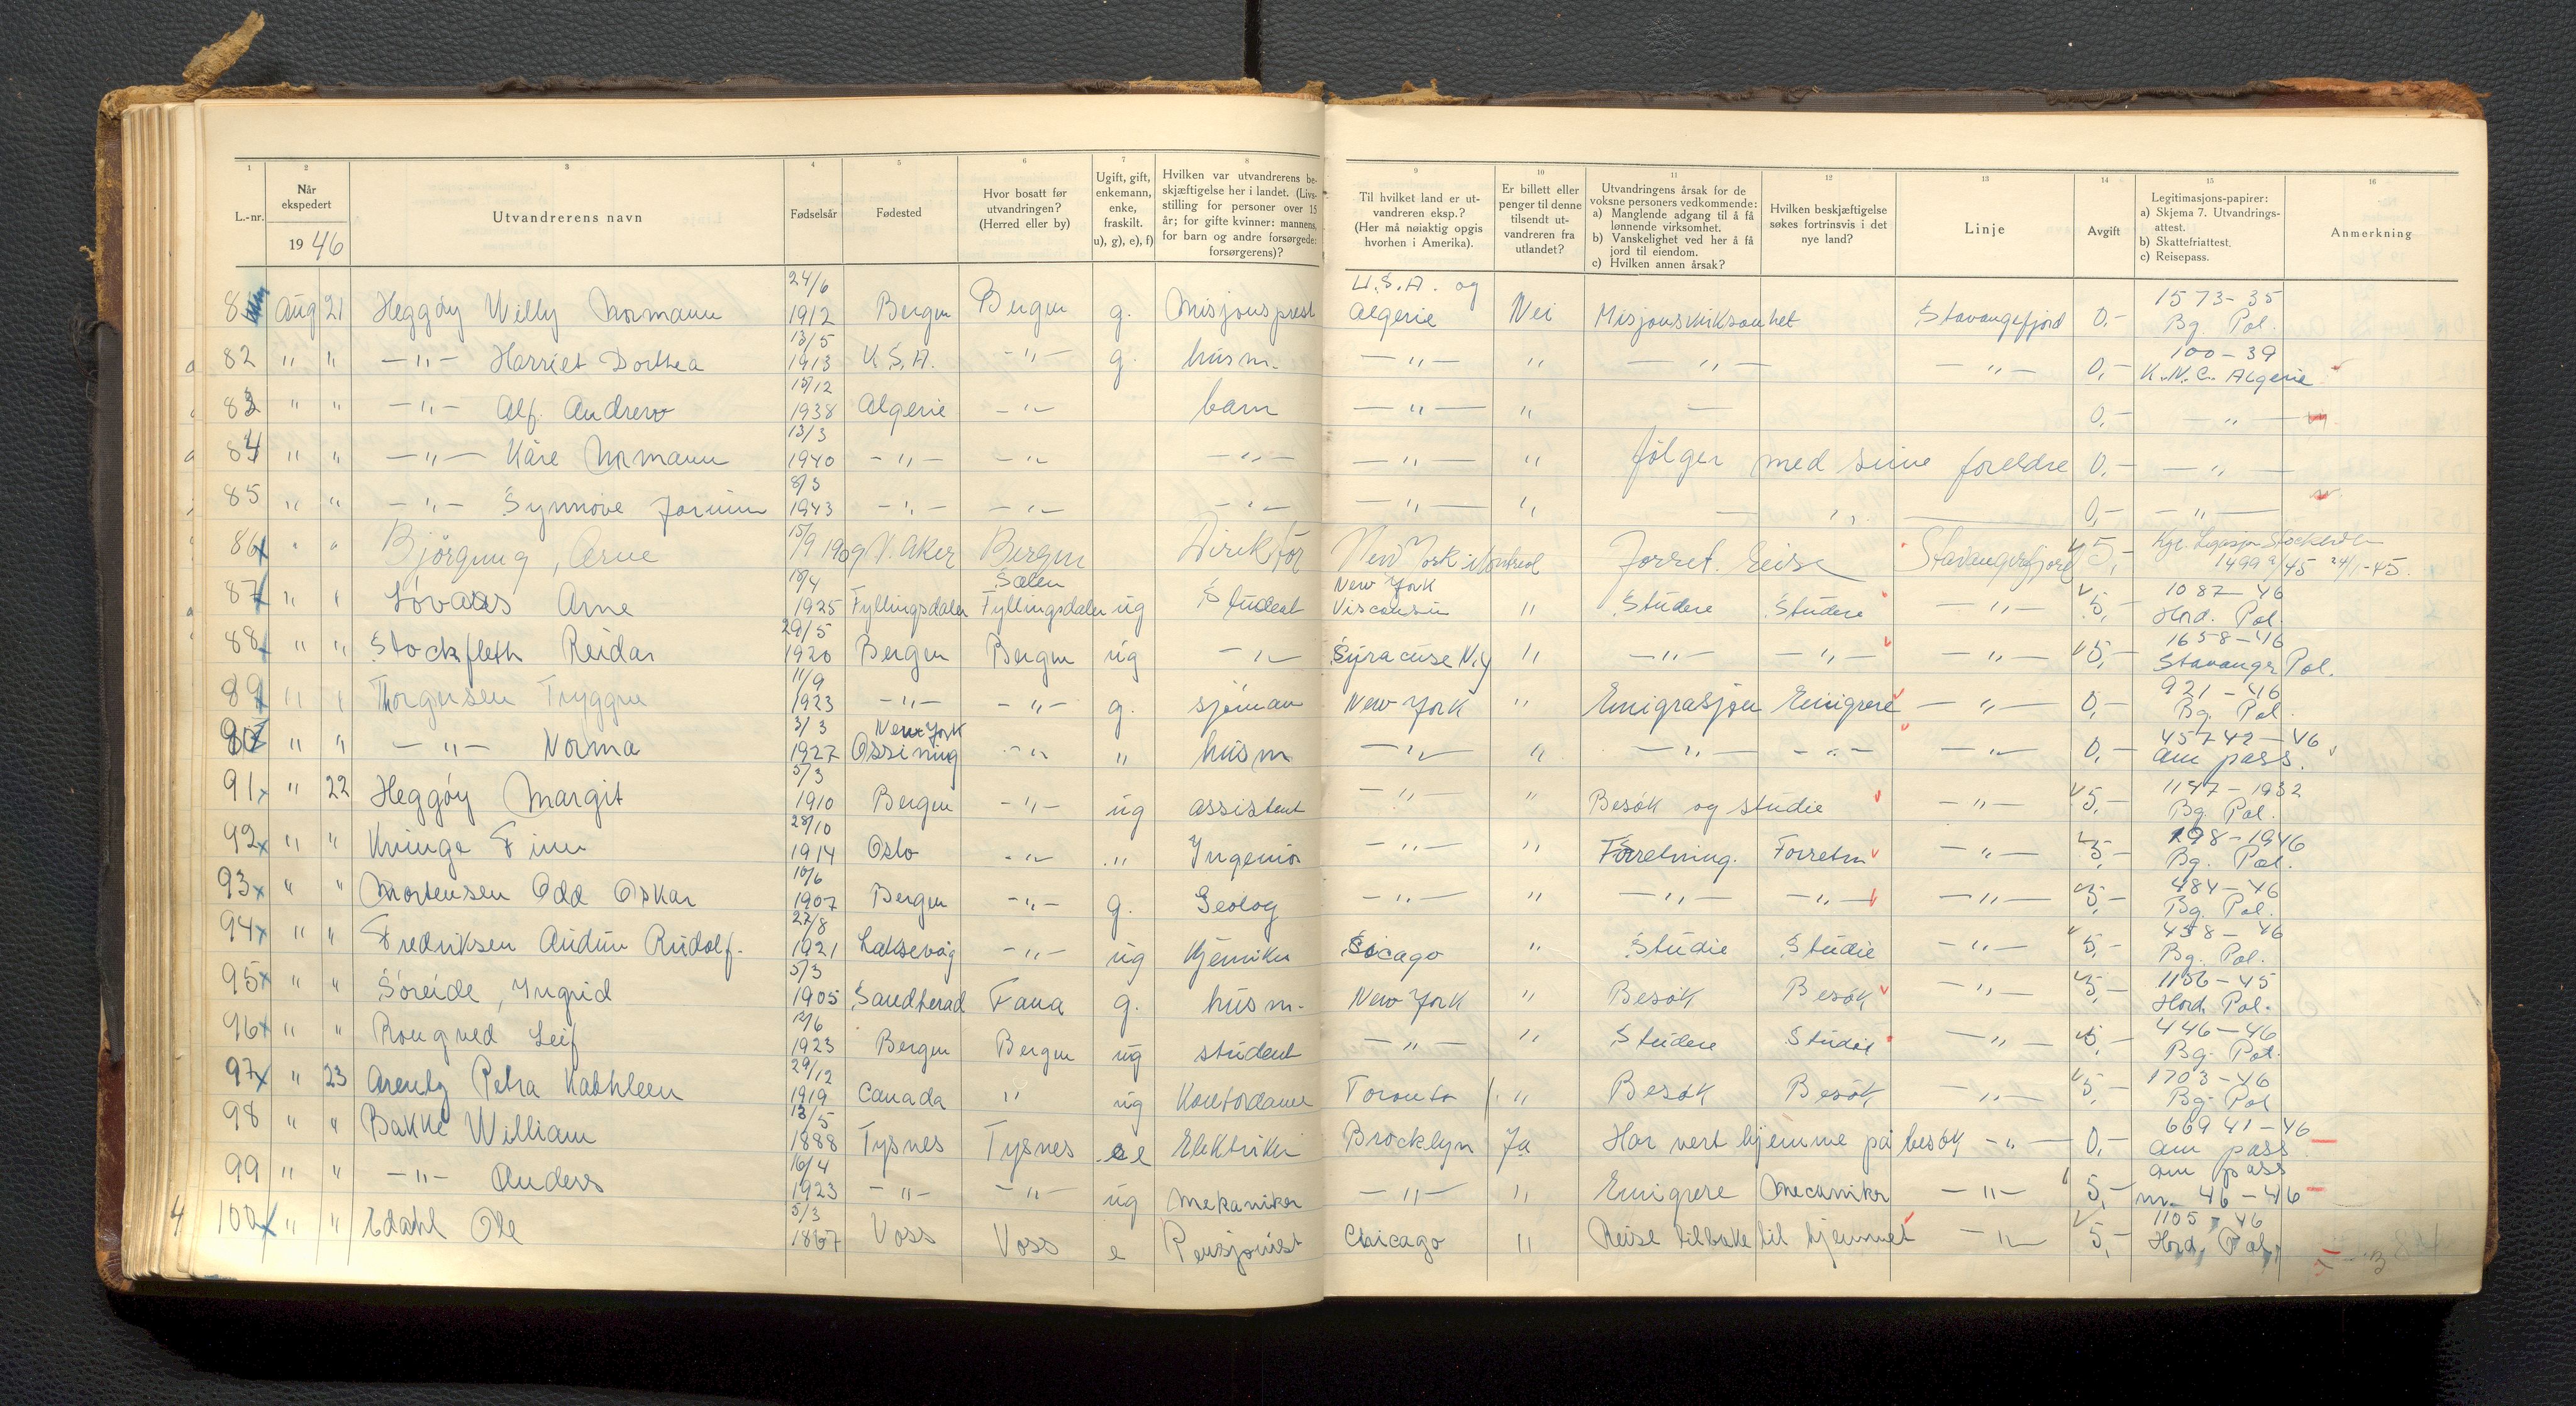 1 2 3 4 5 6 7 8 9 10 11 12 13 14 15 16
L.-nr. Når ekspedert 1946 Utvandrerens navn Fødselsår Fødested Hvor bosatt før utvandringen? (Herred eller by) Ugift, gift, enkemann, enke, fraskilt. u), g), e), f) Hvilken var utvandrerens beskjæftigelse her i landet. (Livsstilling for personer over 15 år; for gifte kvinner: mannens, for barn og andre forsørgede: forsørgerens)? Til hvilket land er utvandreren eksp.? (Her må nøiaktig opgis hvorhen i Amerika). Er billett eller penger til denne tilsendt utvandreren fra utlandet? Utvandringens årsak for de voksne personers vedkommende: a) Manglende adgang til å få lønnende virksomhet. b) Vanskelighet ved her å få jord til eiendom. c) Hvilken annen årsak? Hvilken beskjæftigelse søkes fortrinsvis i det nye land? Linje Avgift Legitimasjons-papirer: a) Skjema 7. Utvandringsattest. b) Skattefriattest. c) Reisepass. Anmerkning
8 Aug 21 Heggöy Willy Normann 24/6 1912 Bergen Bergen g. Misjonsprest U.S.A. og Algerie Nei Misjonsvirksomhet Stavangefjord 0,- 1573-35 Bg. Pol.
82 " " -"- Harriet Dorthea 13/5 1913 U.S.A. -"- g. husm. -"- " -"- -"- 0,- 100-39 K.N.C. Algerie
83 " " -"- Alf Andrew 18/12 1938 Algerie -"- barn -"- " — 0,- -"-
84 " " -"- Kåre Normann 13/3 1940 -"- -"- -"- -"- " følger med sine foreldre 0,- -"-
85 " " -"- Synnöve Jorunn 8/3 1943 -"- -"- -"- -"- " -"- 0,- -"-
86x " " Björgung, Arne 15/9 1909 V. Aker Bergen Direktör New York Montreal Forret. reise Stavangerfjord 5,- Kgl. Legasjon Stockholm 1499 a/45 24/1-45.
87x " " Lövaas Arne 18/4 1925 Fyllingsdalen Sælen Fyllingsdalen ug Student New York Visconsin " Studere Studere -"- 5,- 1087-46 Hord. Pol.
88x " " Stockfleth Reidar 29/5 1920 Bergen Bergen ug -"- Syracuse N.y " -"- -"- -"- 5,- 1658-46 Stavanger Pol.
89x " " Thorgersen Tryggve 11/9 1923 -"- -"- g. sjöman New York " Emigrasjon Emigrere -"- 0,- 921-46 Bg. Pol.
90x " " -"- Norma 3/3 1927 New York Ossining -"- " husm -"- " -"- -"- -"- 0,- 45742-46 am pass.
91x " 22 Heggöy Margit 5/3 1910 Bergen -"- ug assistent -"- " Besök og studie -"- 5,- 1147-1932 Bg. Pol.
92x " " Kvinge Finn 28/10 1914 Oslo -"- " Ingeniör -"- " Forretning. Forretn -"- 5,- 298-1946 Bg. Pol.
93x " " Mortensen Odd Oskar 10/6 1907 Bergen -"- g. Geolog -"- " -"- -"- -"- 5,- 484-46 Bg. Pol.
94x " " Fredriksen Audun Rudolf. 27/8 1921 Laksevåg -"- ug Kjemiker Sicago " Studie Studie -"- 5,- 458-46 Bg. Pol.
95x " " Söreide, Ingrid 5/3 1905 Sandherad Fana g. husm. New York " Besök Besök -"- 5,- 1156-45 Hord. Pol.
96x " " Rongved Leif 12/6 1923 Bergen Bergen ug student -"- " Studere Studie -"- 5,- 446-46 Bg. Pol.
97x " 23 Arentz Petra Kathleen 29/12 1919 Canada " ug Kontordame Toronto " Besök Besök -"- 5,- 1703-46 Bg. Pol
98 " " Bakke William 13/5 1888 Tysnes Tysnes e Elektriker Brocklyn Ja Har vert hjemme på besök -"- 0,- 66941-46 am pass.
99 " " -"- Anders 16/4 1923 -"- -"- ug mekaniker -"- " Emigrere Mecaniker -"- 5,- am pass nr. 46-46
4 100x " " Edahl Ole 5/3 1867 Voss Voss e Pensjonist Chicago " Reise tilbake til hjemmet -"- 5,- 1105-46 Hord. Pol.